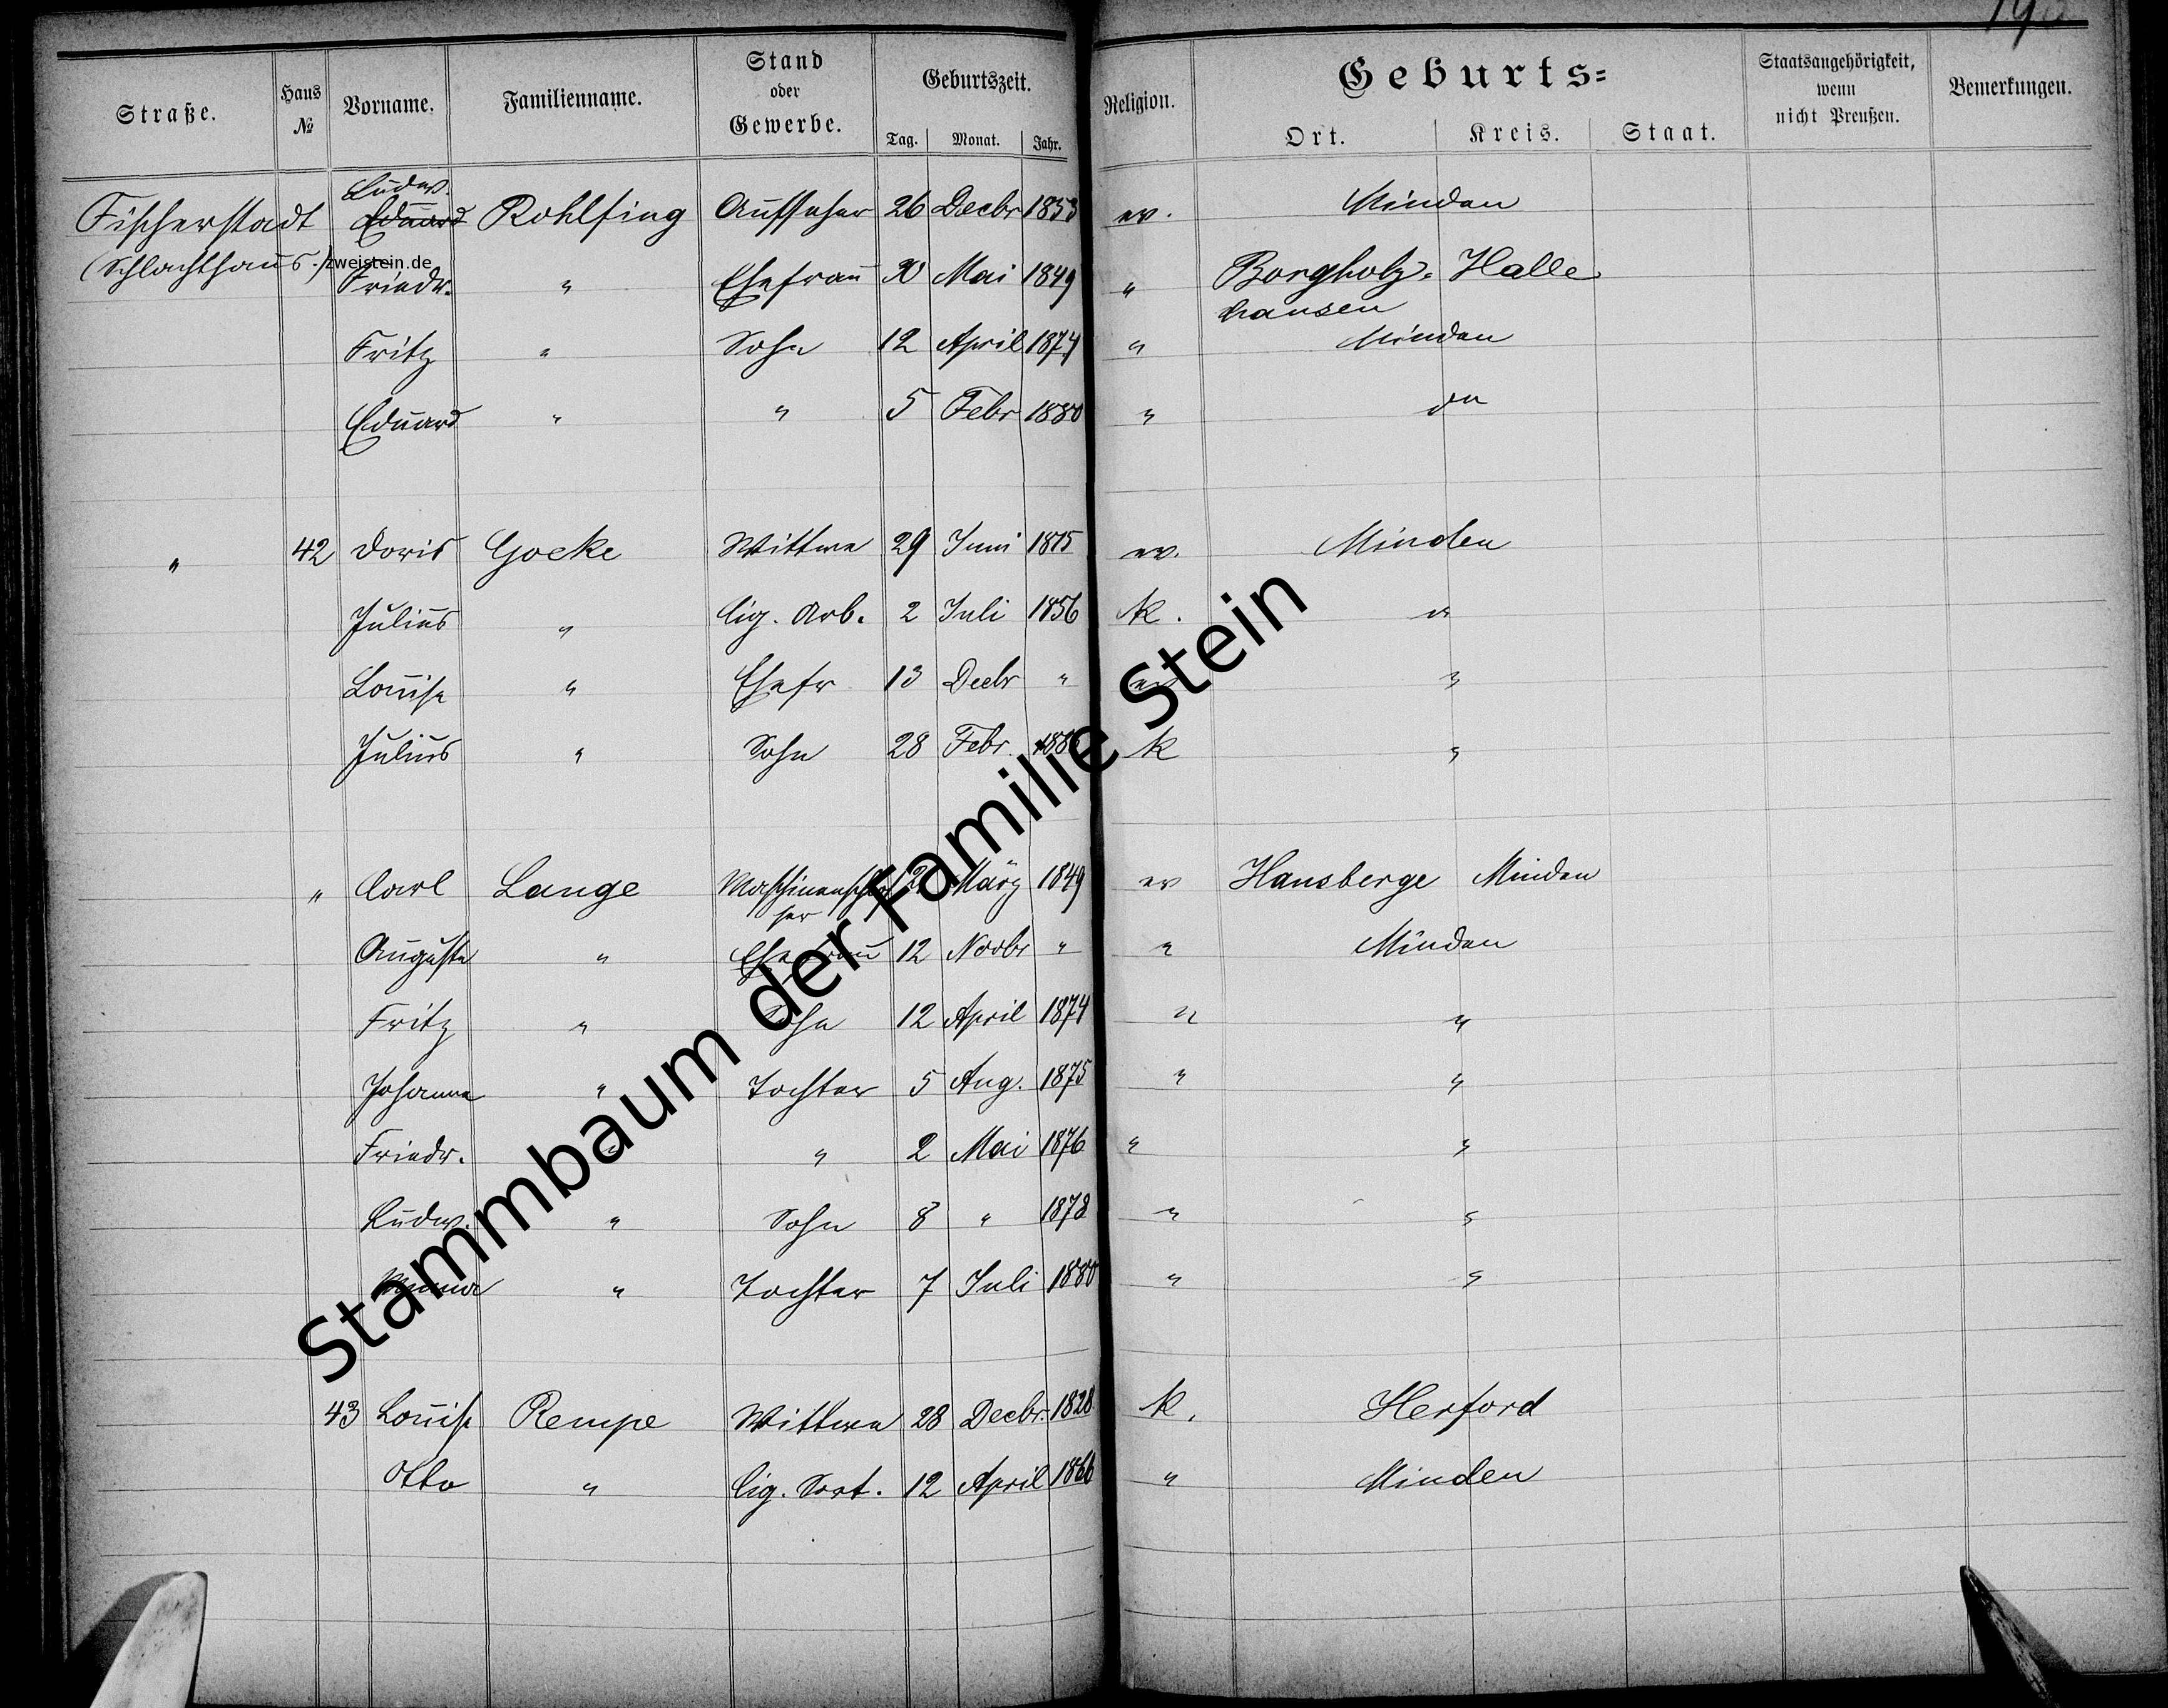 Straße. Haus № Vorname. Familienname. Stand oder Gewerbe. Geburtszeit. Tag. Monat. Jahr. Religion. Geburts= Ort. Kreis. Staat. Staatsangehörigkeit, wenn nicht Preußen. Bemerkungen.
Ludw.
Fischerstadt Eduard Rohlfing Aufseher 26 Decbr 1853 ev. Minden
(Schlachthaus.) zweistein.de
Friedr. " Ehefrau Mai 1849 " Borgholz= Halle
hausen
Fritz " Sohn 12 April 1874 " Minden
Eduard " " 5 Febr 1880 "
" 42 Doris Goeke Wittwe 29 Juni 1815 ev. Minden
Julius " Cig. Arb. 2 Juli 1856 k. "
Louise " Ehefr 13 Decbr " ev "
Julius " Sohn 28 Febr. k "
" Carl Lange Maschinenschlos
ser März 1849 ev Hausberge Minden
Auguste " Ehefrau 12 Novbr " " Minden
Fritz " Sohn 12 April 1874 " "
Johanne " Tochter 5 Aug. 1875 " "
Friedr. " " 2 Mai 1876 " "
Ludw. " Sohn 8 " 1878 " "
" Tochter 7 Juli 1880 " "
43 Louise Rempe Wittwe 28 Decbr. 1828 k. Herford
Otto " Cig. Sort. 12 April 1866 " Minden
Stammbaum der Familie Stein